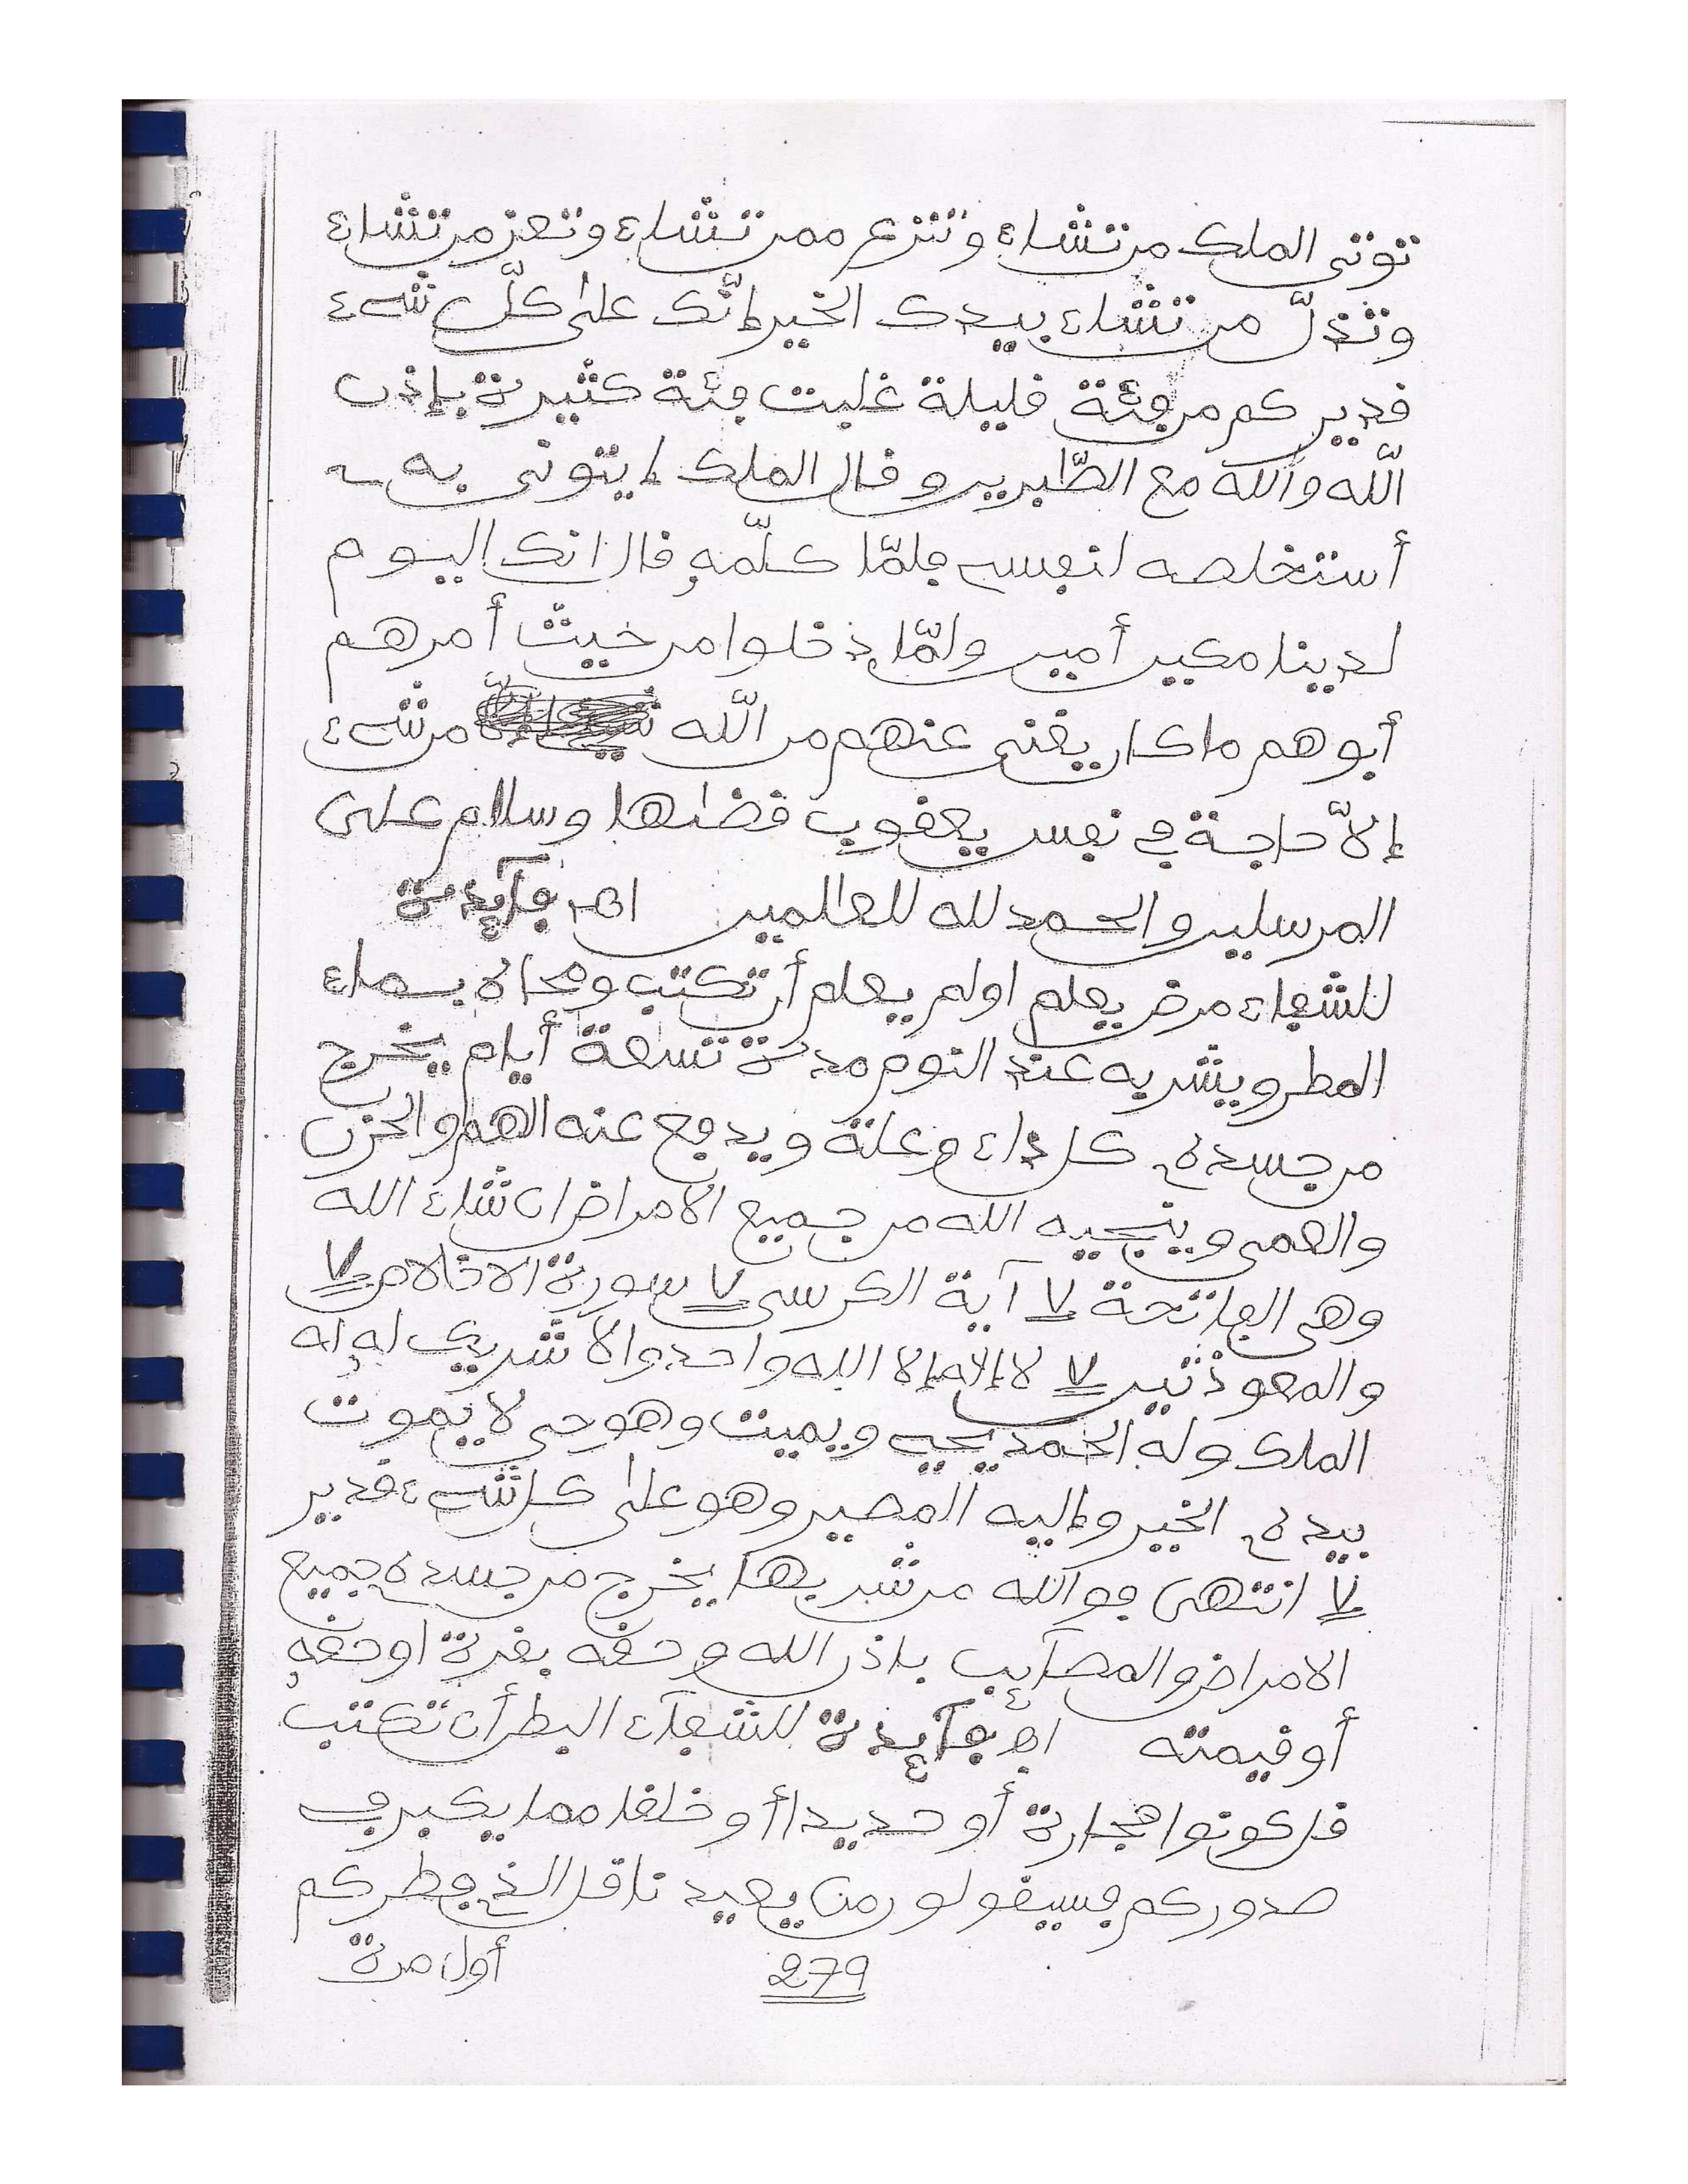 توتى الملك من تشاء وتنزع ممن تشاء وتعز من تشاء
وتذلّ من تشاء بيدك الخير إنّك على كلّ شىء
قدير كم من فئة قليلة غلبت فئة كثيرة بإذن
اللّه والله مع الصّبرين وقال الملك إيتونى به
أستخلصه لنفسى فلمّا كلّمه قال انك اليوم
لدينا مكين أمين ولمّا دخلوا من حيث أمرهم
أبوهم ما كان يغنى عنهم من اللّه من شىء
إلاّ حاجة فى نفس يعقوب قضىها وسلام على
المرسلين والحمد لله للعالمين اهـ فآيدة
للشفاء مرض يعلم اولم يعلم أن تكتب ومحاه بماء
المطر ويشربه عند النوم مدة تسعة أيام يخرج
من جسده كل داء وعلة ويدفع عنه الهم والحزن
والعمى وينجيه الله من جميع الامراض ان شاء الله
وهى الفاتحة ٧ آية الكرسى ٧ سورة الاخلاص ٧
والمعوذتين ٧ لا إله إلا الله واحد ولا شريك له له
الملك وله الحمد يحيى ويميت وهو حى لا يموت
بيده الخير وإليه المصير وهو على كل شىء قدير
٧ انتهى فو الله من شربها يخرج من جسده جميع
الامراض والمصآيب باذن الله وحقه بقرة اوحقه
أو قيمته اهـ فآيدة للشفآء البطن أن تكتب
قل كونوا حجارة أو حديدا أأو خلقا مما يكبر فى
صدوركم فسيقولون من يعيدنا قل الذى فطركم
279 أول مرة